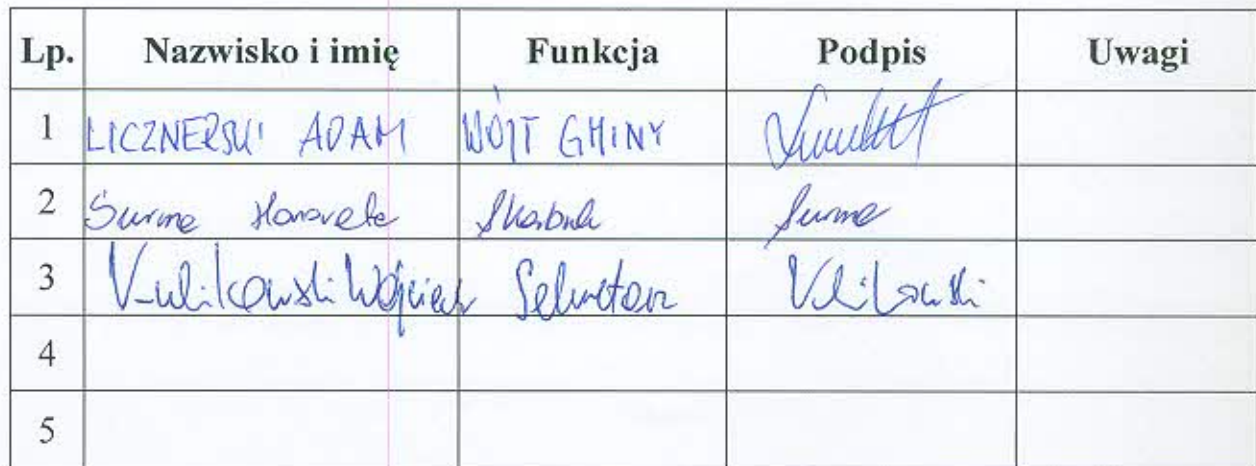 Lp. Nazwisko i imię Funkcja Podpis Uwagi
1 LICZNERSKI ADAM WÓJT GMINY
2 Surma Skarbnik Surma
3 Kulikowski Wojciech Sekretarz Kulikowski
4
5